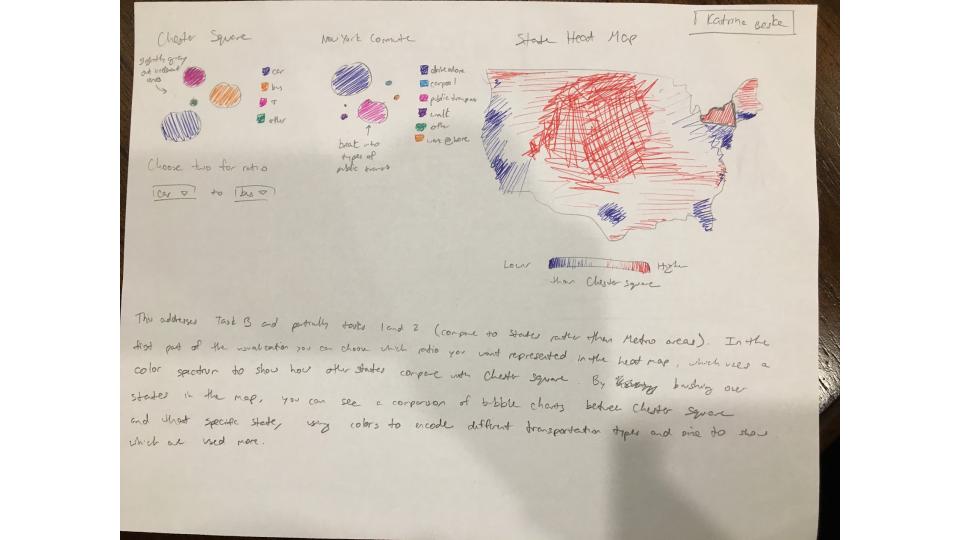 Katrina
Chester Square
New York Commute
State Heat Map
slightly gray
out irrelevant
ones
car
bus
T
other
drive alone
carpool
public transport
walk
other
work @ home
break into
types of
public transit
Choose two for ratio
car to bus
Lower
Higher
than Chester Square
This addresses Task 3 and partially tasks 1 and 2 (compare to states rather than Metro areas). In the
first part of the visualization you can choose which ratio you want represented in the heat map, which uses a
color spectrum to show how other states compare with Chester Square. By brushing over
states in the map, you can see a comparison of bubble charts between Chester Square
and that specific state, using colors to encode different transportation types and size to show
which are used more.